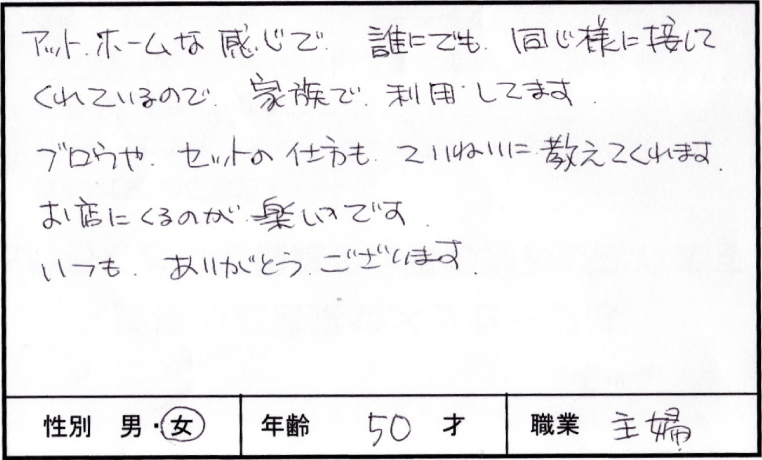 アットホームな感じで、誰にでも、同じ様に接して
くれているので、家族で、利用してます。
ブロウや、セットの仕方も、ていねいに教えてくれます。
お店にくるのが楽しいです。
いつも、ありがとうございます。
性別 男・女 年齢 50 才 職業 主婦